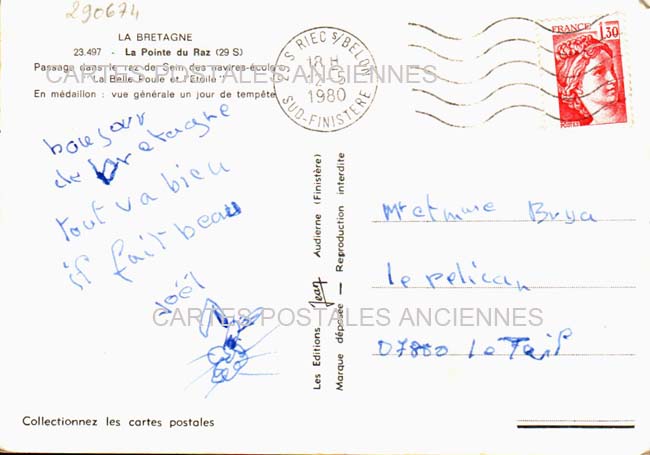 290674
LA BRETAGNE
23.497 - La Pointe du Raz (29 S)
Passage dans le raz de Sein des navires-écoles
"La Belle Poule et l'Etoile"
En médaillon : vue générale un jour de tempête
CARTES POSTALES ANCIENNES
29 S RIEC S/BELON
18 H
1980
SUD-FINISTERE
FRANCE
1,30
bonjour
de bretagne
tout va bien
il fait beau
Joël
CARTES POSTALES ANCIENNES
Les Editions Jean Audierne (Finistère)
Marque déposée — Reproduction interdite
Mr et mme
le pelican
Collectionnez les cartes postales